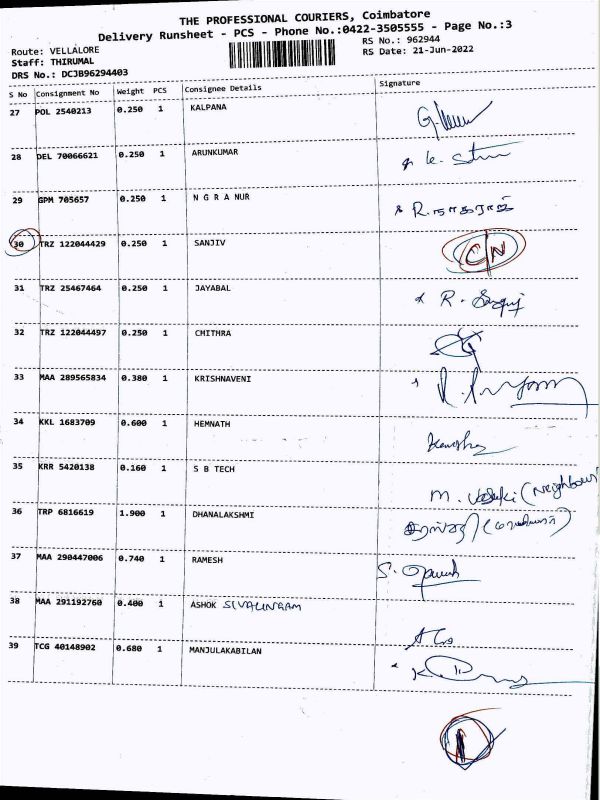 THE PROFESSIONAL COURIERS, Coimbatore
Delivery Runsheet - PCS - Phone No.:0422-3505555 - Page No.:3
Route: VELLALORE
RS No.: 962944
Staff: THIRUMAL
RS Date: 21-Jun-2022
DRS No.: DCJB96294403
S No Consignment No Weight PCS Consignee Details Signature
27 POL 2540213 0.250 1 KALPANA
28 DEL 70066621 0.250 1 ARUNKUMAR
29 GPM 705657 0.250 1 N G R A NUR R. நாகராஜ்
30 TRZ 122044429 0.250 1 SANJIV C/N
31 TRZ 25467464 0.250 1 JAYABAL R.
32 TRZ 122044497 0.250 1 CHITHRA
33 MAA 289565834 0.380 1 KRISHNAVENI
34 KKL 1683709 0.600 1 HEMNATH
35 KRR 5420138 0.160 1 S B TECH M. (Neighbour
36 TRP 6816619 1.900 1 DHANALAKSHMI
37 MAA 290447006 0.740 1 RAMESH S.
38 MAA 291192760 0.400 1 ASHOK SIVALINGAM
39 TCG 40148902 0.680 1 MANJULAKABILAN